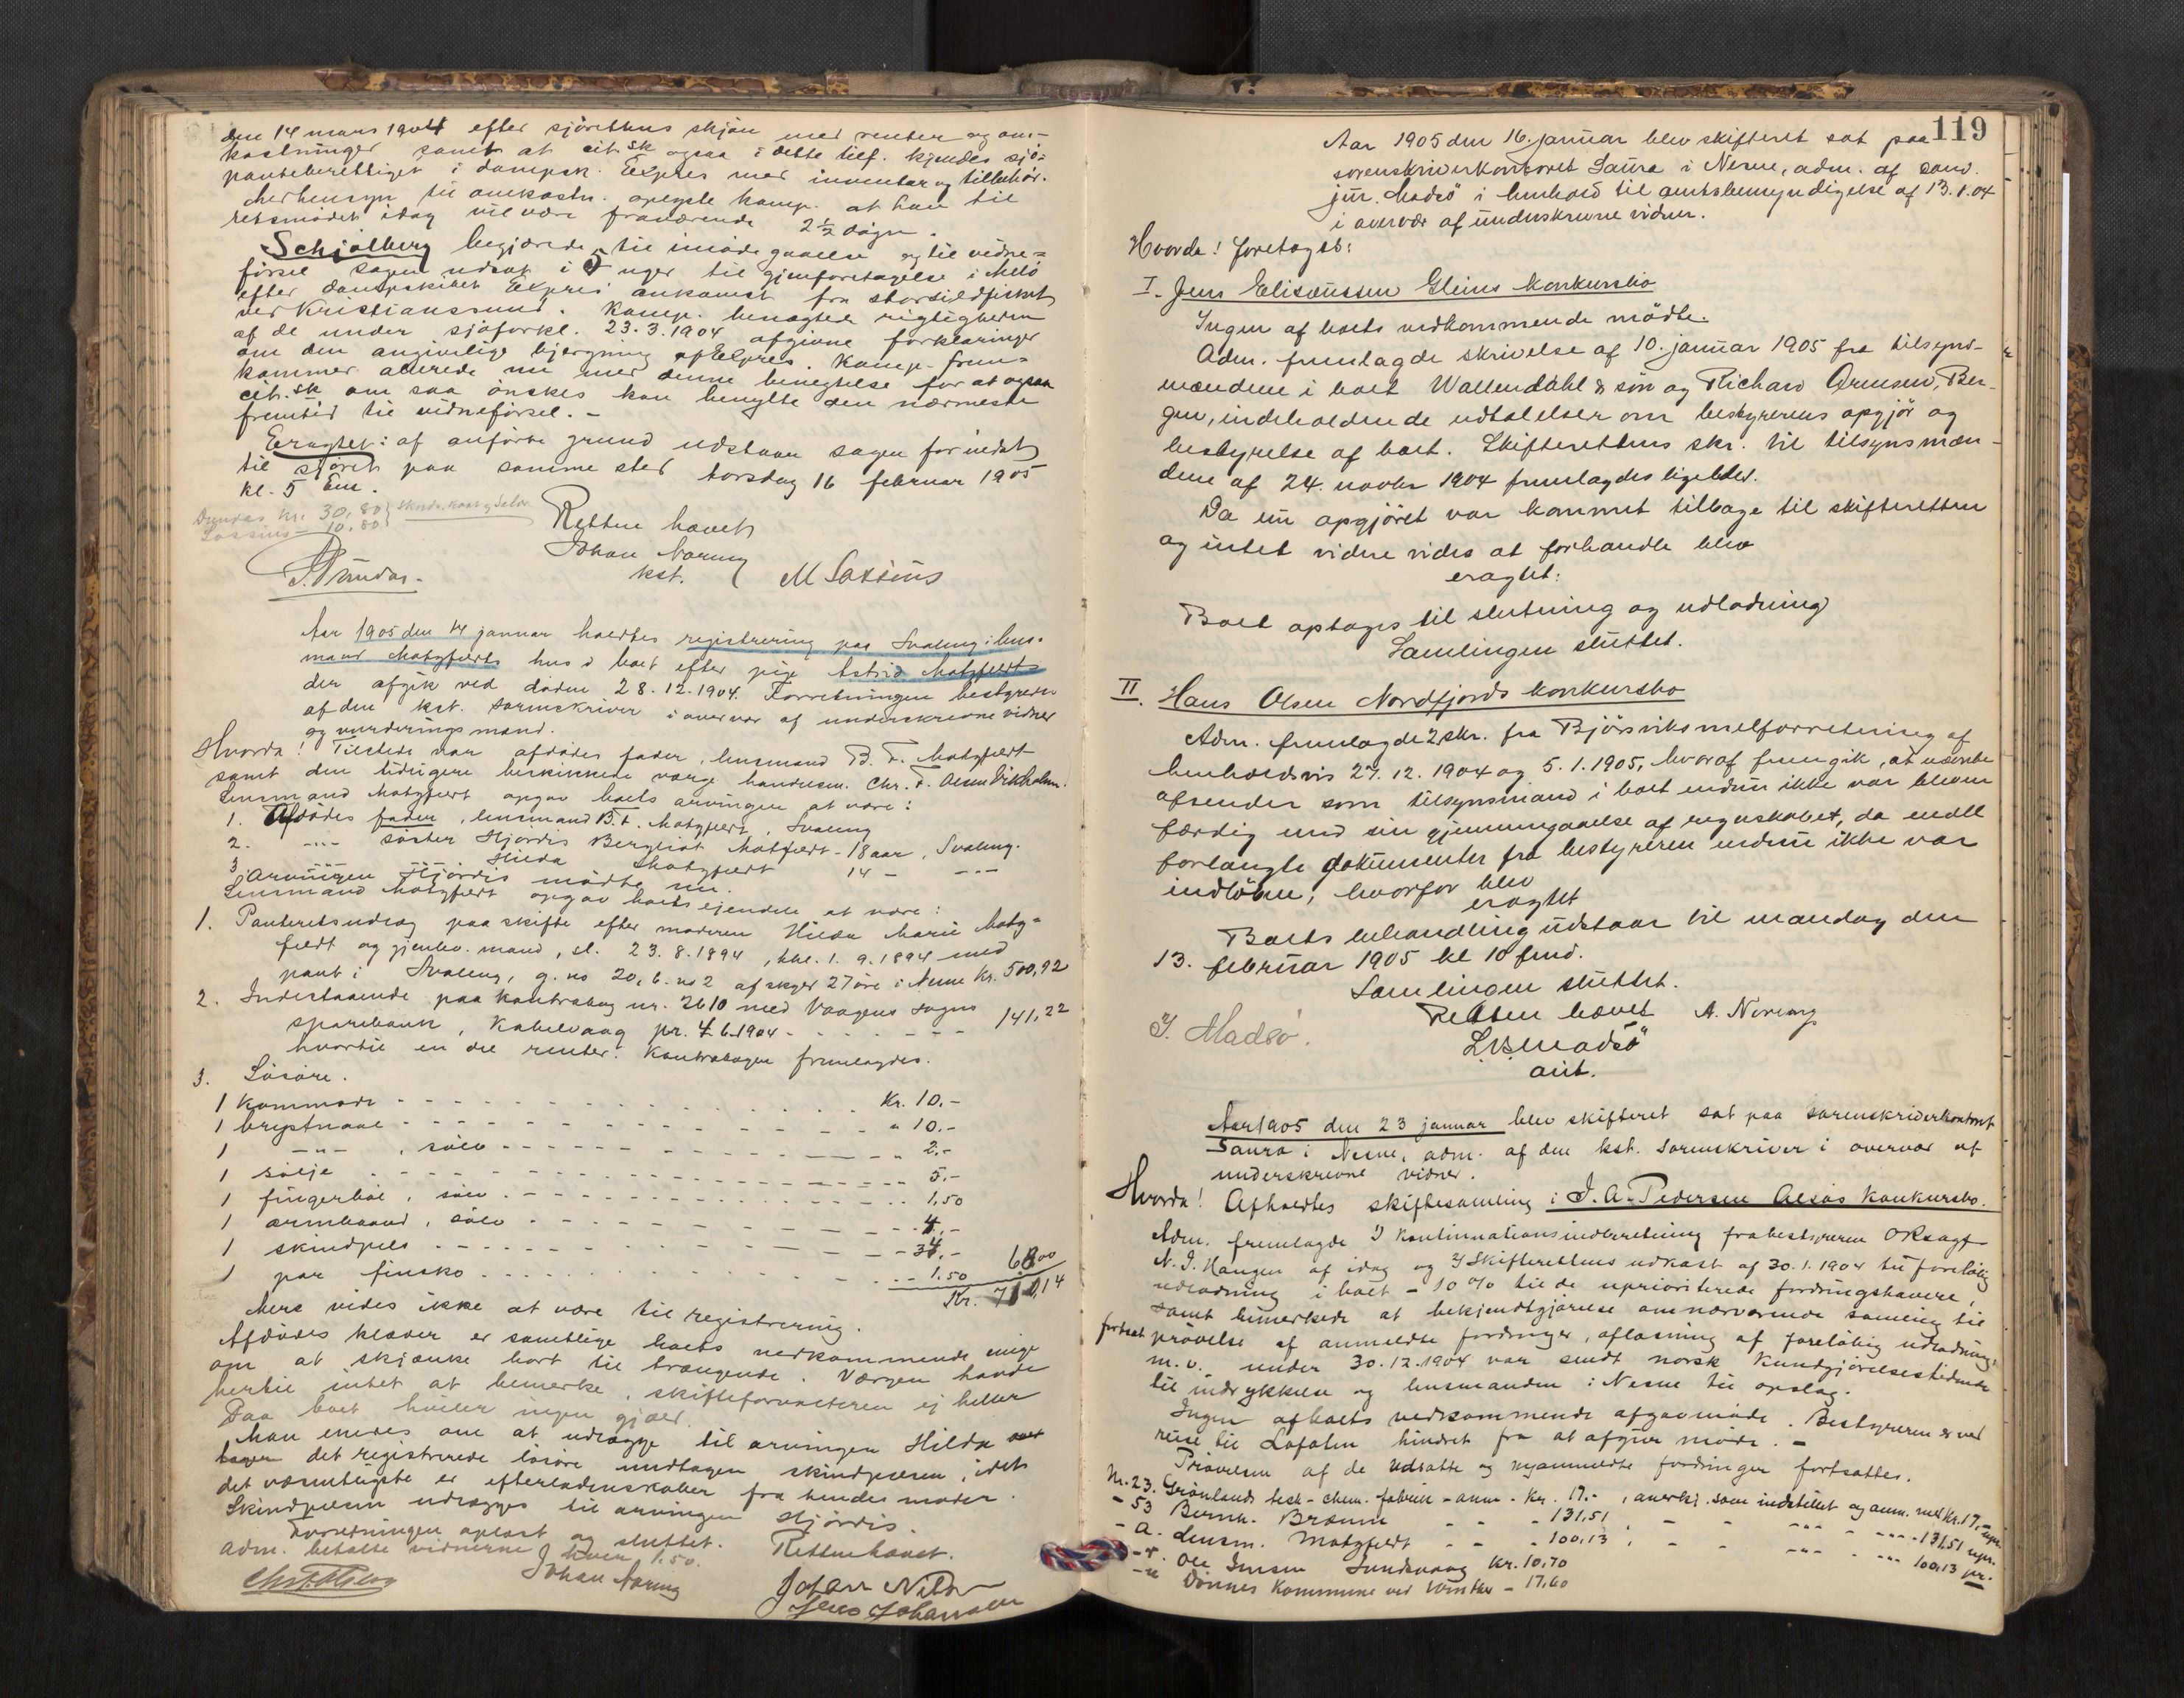 den 14 mars 1904 efter sjörettens skjön med renter og om-
kostninger samt at cit. sk ogsaa i dette tilf. kjendes sjö-
panteberettiget i dampsk. Expres med inventar og tilbehör.
Medhensyn til omkostn. opgste komp. at han til
retsmödet idag vil være fraværende 2 1/2 dögn.
Schjölberg begjærede til imödegaaelse og til vidne-
försel sagen udsat i 5 uger til gjenforetagelse i Melö
efter dampskibet Expres' ankomst fra storsildfisket
ved Kristianssund. Komp. benegtede rigtigheden
af de under sjöforkl. 23.3.1904 afgivne forklaringer
om den angivelige bjergning af Expres. Komp. frem-
kommer allerede nu med denne benegtelse for at ogsaa
cit. sk om saa önskes kan benytte den nærmeste
fremtid til vidneförsel. -
Eragtet: af anförte grund udstaar sagen forinden
til sjöret paa samme sted torsdag 16 februar 1905
kl. 5 Em.
Dundas kr. 30,80
Lassius - 10,80
Retten hævet
Johan Norum
kst.
Dundas.
M Lassius
Aar 1905 den 14 januar holdtes registrering paa Svaleng i lens-
mand Motzfeldts hus i boet efter pige Astrid Motzfeldt
der afgik ved döden 28.12.1904. Forretningen bestyredes
af den kst. sorenskriver i overvær af underskrevne vidner
og vurderingsmænd.
Hvorda! Tilstede var afdödes fader, lensmand B. F. Motzfeldt
samt den tidligere beskikkede værge handelsm. Chr. F. Olsen Vikholmen.
Lensmand Motzfeldt opgav boets arvinger at være:
1. Afdödes fader, lensmand B. F. Motzfeldt, Svaleng
2. -"- söster Hjördis Bergliot Motzfeldt - 18 aar, Svaleng.
3. -"- -"- Hilda Motzfeldt 14 - -"-
Arvingen Hjördis mödte nu.
Lensmand Motzfeldt opgav boets eiendele at være:
1. Panteretsudlæg paa skifte efter moderen Hilda Marie Motz-
feldt og gjenlev. mand, sl. 23.8.1894, thl. 1.9.1894 med
pant i Svaleng, g. no 20, b. no 2 af skyld 27 öre i Nesne Kr. 500,92
2. Indestaaende paa Kontrabog nr. 2610 med Vaagens sogns
sparebank, Kabelvaag pr. 4.6.1904 - - - - - - 141,22
hvortil en del renter. Kontrabogen fremlagdes.
3. Lösöre.
1 kommode - - - - Kr. 10.-
1 brystnaal - - - - " 10.-
1 -"- , sölv - - - - " 2.-
1 sölje - - - - 5.-
1 fingerböl, sölv - - - - 1,50
1 armbaand, sölv - - - - 4,-
1 skindpels - - - - 34,-
1 par finsko - - - - 1.50 68,00
Kr. 710,14
Mere vides ikke at være til registrering.
Afdödes klæder er samtlige boets vedkommende enige
om at skjænke bort til trængende. Værgen havde
hertil intet at bemerke, skifteforvalteren ej heller
Paa boet hviler ingen gjæld.
Man enedes om at udlægge til arvingen Hilda
det registrerede lösöre undtagen skindpelsen, idet
det væsentligste er efterladenskaber fra hendes moder.
Skindpelsen udlægges til arvingen Hjördis.
Forretningen oplæst og sluttet. Retten hævet.
Adm. betalte vidnerne hver 1.50.
Johan Norum
Johan Nilsen
Jens Johansen
119
Aar 1905 den 16. januar blev skifteret sat paa
sorenskriverkontoret Saura i Nesne, adm. af cand.
jur. Madsö i henhold til amtsbemyndigelse af 13.1.04
i overvær af underskrevne vidner.
Hvorda! foretoges:
I. Jens Elisæussen Gleins konkursbo
Ingen af boets vedkommende mödte.
Adm. fremlagde skrivelse af 10. januar 1905 fra tilsyns-
mændene i boet Wallendahl & sön og Richard Arnesen, Ber-
gen, indeholdende udtalelser om bestyrerens opgjör og
bestyrelse af boet. Skifterettens skr. til tilsynsmæn-
dene af 24. novbr 1904 fremlagdes ligeledes.
Da nu opgjöret var kommet tilbage til skifteretten
og intet videre vides at forhandle blev
eragtet:
Boet optages til slutning og udlodning
Samlingen sluttet.
II. Hans Olsen Nordfjords konkursbo
Adm. fremlagde 2 skr. fra Björsviks melforretning af
henholdsvis 27.12.1904 og 5.1.1905, hvoraf fremgik, at nævnte
afsender som tilsynsmand i boet endnu ikke var bleven
færdig med sin gjennemgaaelse af regnskabet, da endel
forlangte dokumenter fra bestyreren endnu ikke var
indlöbne; hvorfor blev
eragtet
Boets behandling udstaar til mandag den
13. februar 1905 kl 10 fmd.
Samlingen sluttet.
Retten hævet
A. Norum
J. Madsö.
L. B. Madsö
aut.
Aar 1905 den 23 januar blev skifteret sat paa sorenskriverkontoret
Saura i Nesne, adm. af den kst. sorenskriver i overvær af
underskrevne vidner.
Hvorda! Afholdtes skiftesamling i J. A. Pedersen Alsos konkursbo.
Adm. fremlagde 1) kontinuationsindberetning fra bestyreren Oksagf
N. J. Haugen af idag og 2) Skifterettens udkast af 30.1.1904 til foreløbig
udlodning i boet - 10 % til de uprioriterede fordringshavere,
samt bemerkede at bekjendtgjörelse om nærværende samling til
fortsat prövelse af anmeldte fordringer, aflæsning af foreløbig udlodning
m.v. under 30.12.1904 var sendt norsk Kundgjörelsestidende
til indrykkelse og lensmanden i Nesne til opslag.
Ingen af boets vedkommende afgav möde. Bestyreren er ved
reise til Lofoten hindret fra at afgive möde. -
Prövelsen af de udsatte og nyanmeldte fordringer fortsattes.
Nr. 23. Grönlands tesk-chem. fabrik - anm. Kr. 17.-, anerkj. som indstillet og anm. med Kr. 17,- upr.
- 53 Bernh. Brænne - - - 131,51, - - -"- - -"- 131,51 upr.
- a. Lensm. Motzfeldt - - - 100,13, - - -"- - -"- 100,13 pr.
- r. Ole Jensen Sundsvaag Kr. 10,70
- u Dönnes Kommune ved - 17,60